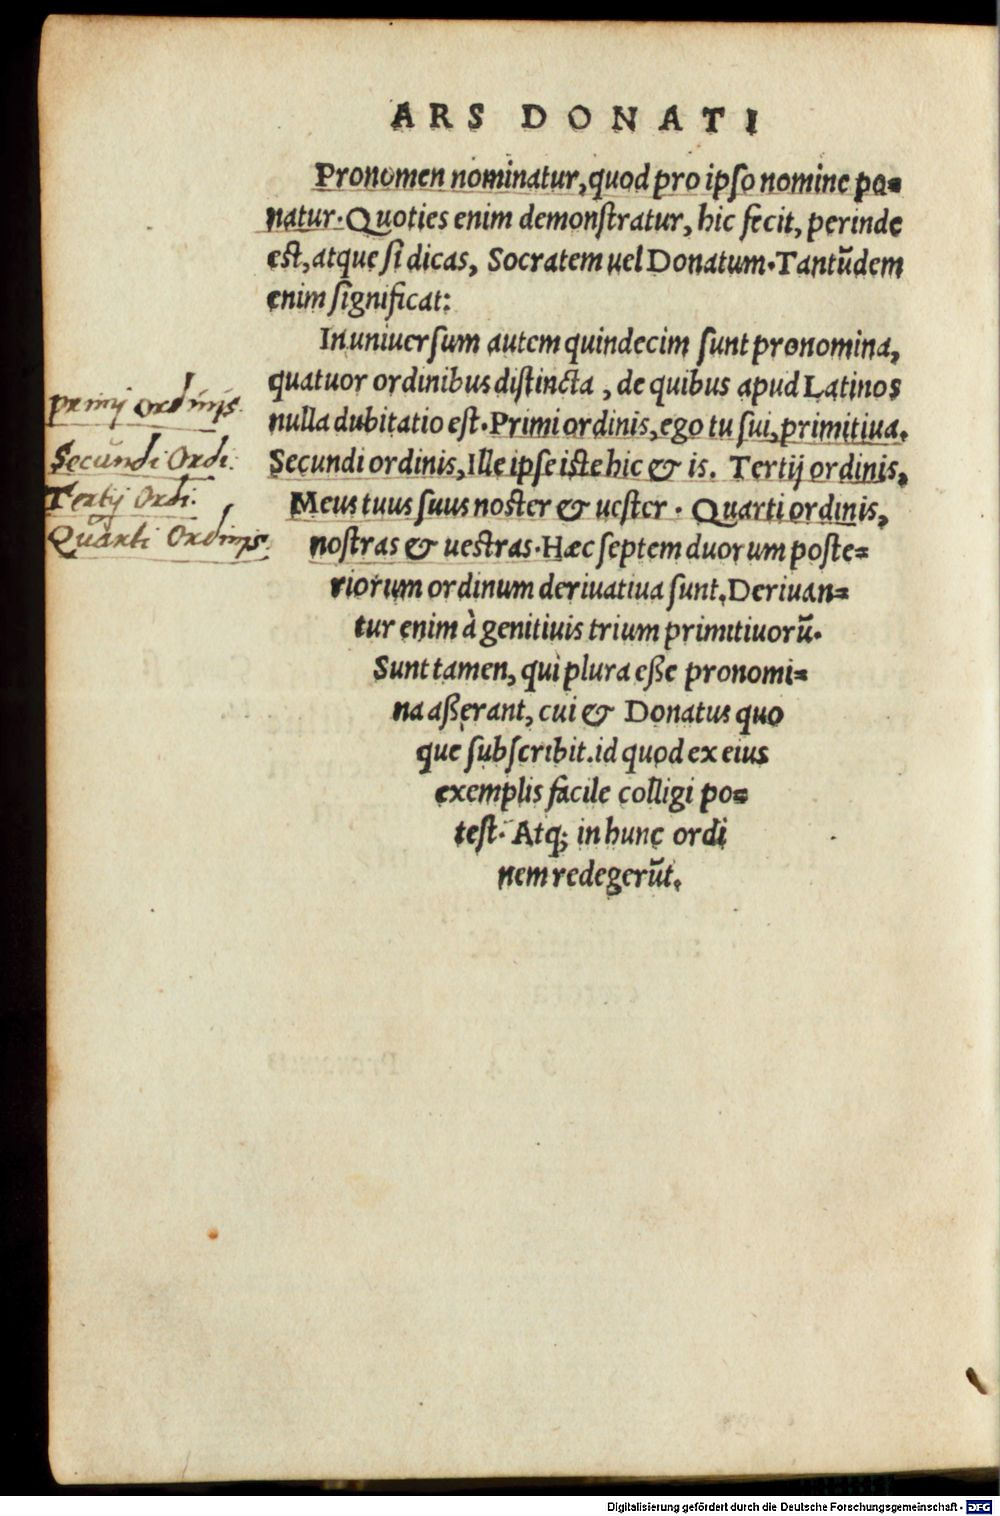 ARS DONATI
Pronomen nominatur, quod pro ipſo nomine po=
natur. Quoties enim demonſtratur, hic fecit, perinde
eſt, atque ſi dicas, Socratem uel Donatum. Tantũdem
enim ſignificat:
In uniuerſum autem quindecim ſunt pronomina,
quatuor ordinibus diſtincta, de quibus apud Latinos
nulla dubitatio eſt. Primi ordinis, ego tu ſui, primitiua.
Secundi ordinis, Ille ipſe iſte hic & is. Tertij ordinis,
Meus tuus ſuus noſter & ueſter. Quarti ordinis,
noſtras & ueſtras. Hæc ſeptem duorum poſte=
riorum ordinum deriuatiua ſunt. Deriuan=
tur enim à genitiuis trium primitiuorũ.
Sunt tamen, qui plura eße pronomi=
na aßerant, cui & Donatus quo
que ſubſcribit. id quod ex eius
exemplis facile colligi po=
teſt. Atq; in hunc ordi
nem redegerũt.
primj Ordinis.
Secundi Ordi.
Tertij Ordi.
Quarti Ordinis.
Digitalisierung gefördert durch die Deutsche Forschungsgemeinschaft - DFG